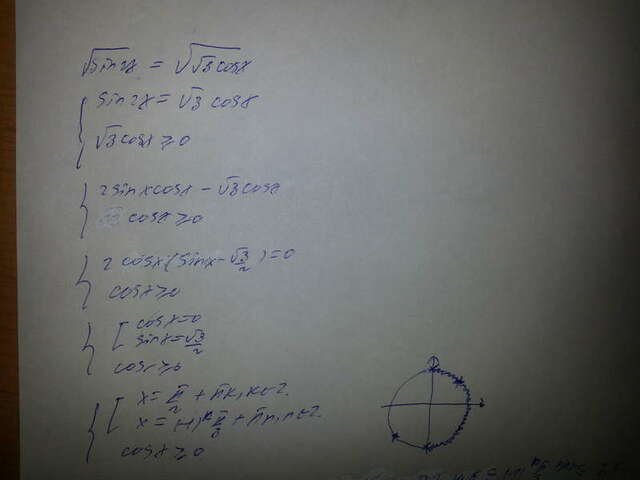 √sin2x = √(√3 cosx)
{ sin2x = √3 cosx
√3 cosx ≥ 0
{ 2sinxcosx - √3cosx
√3 cosx ≥ 0
{ 2 cosx(sinx - √3/2) = 0
cosx ≥ 0
{ [ cosx = 0
sinx = √3/2
cosx ≥ 0
{ [ x = π/2 + πk, k∈Z.
x = (-1)^k π/3 + πn, n∈Z.
cosx ≥ 0